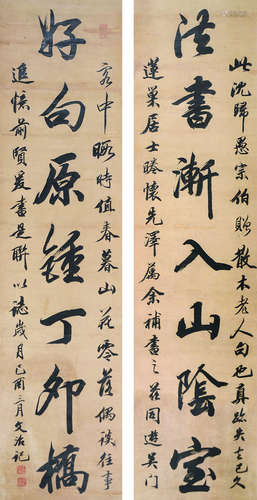 此沈歸愚宗伯贈散木老人句也真跡失去已久
法書漸入山陰室
蓮巢居士睠懷先澤屬余補書之茲同遊吳門
客中暇時值春暮山花零落偶談往事
好句原鍾丁卯橋
追懷前賢爰書是聯以誌歲月己酉三月文治記